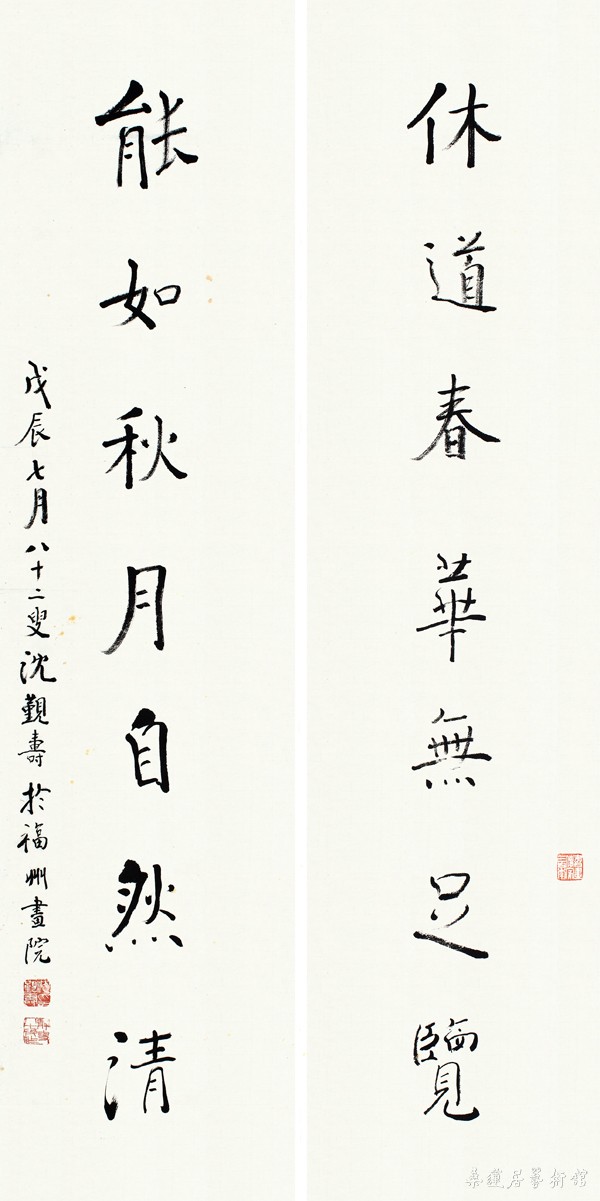 休道春華無足覽
能如秋月自然清
戊辰七月八十二叟沈覲壽於福州畫院